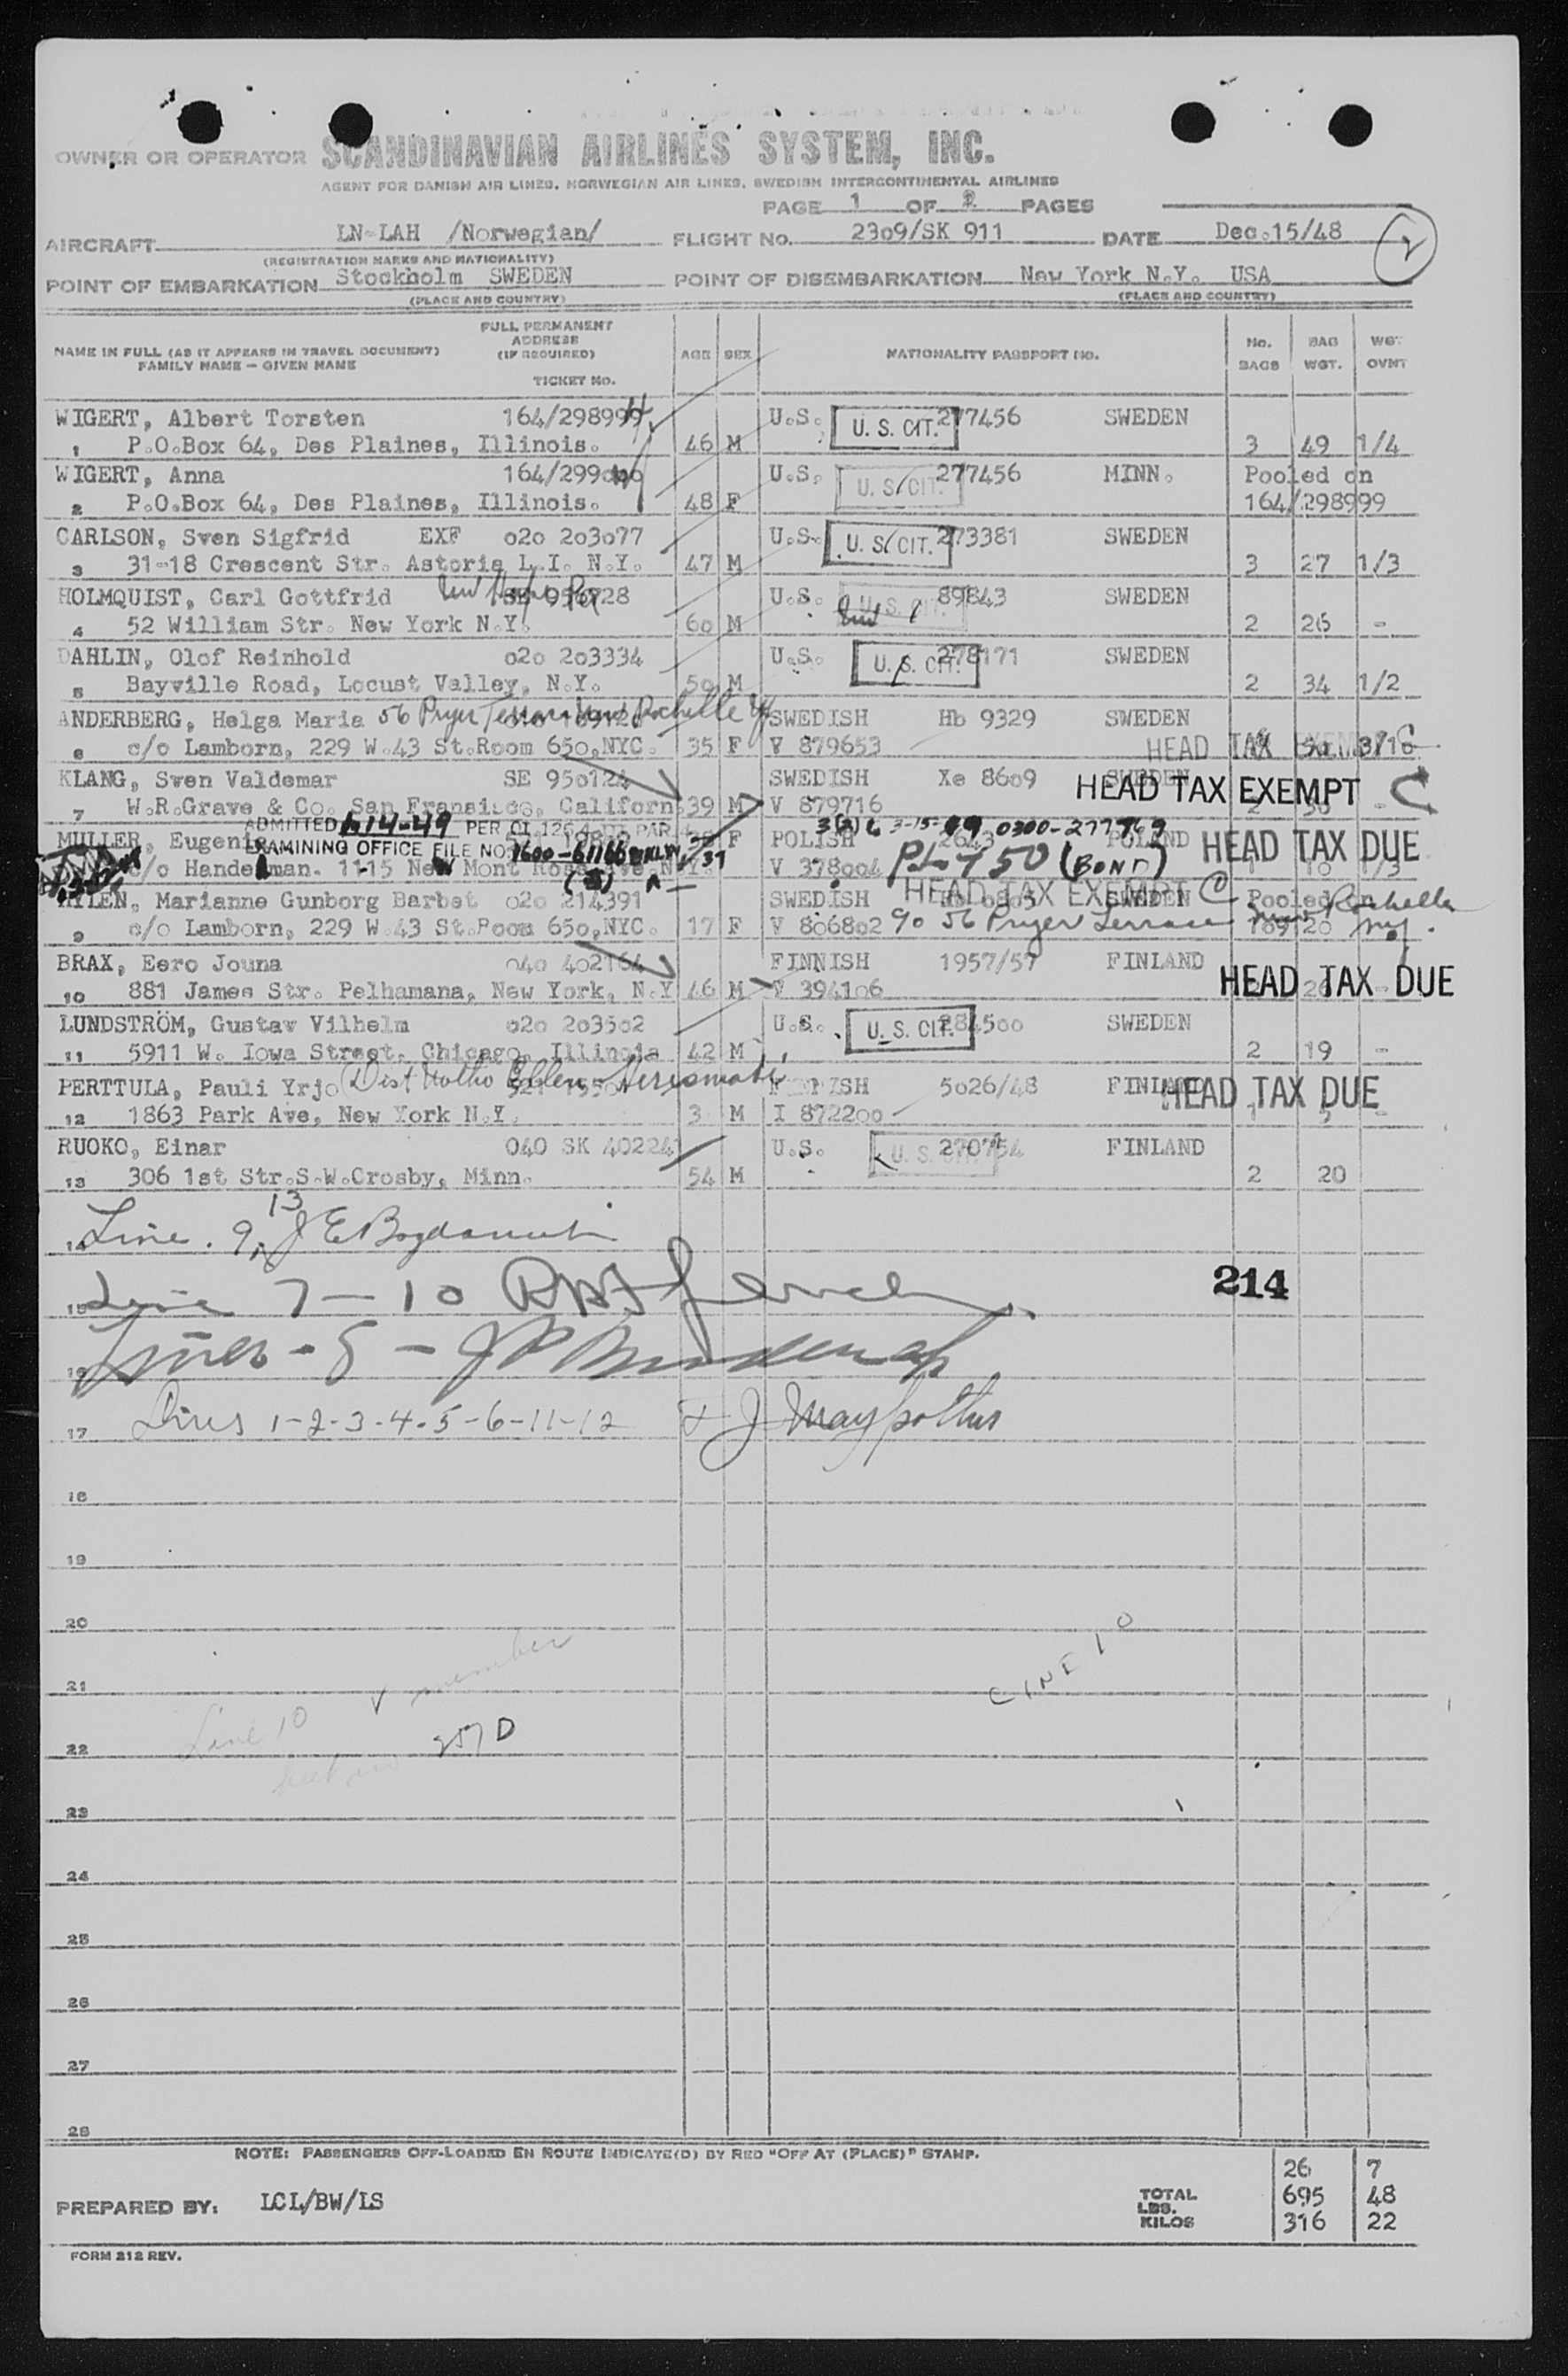 OWNER OR OPERATOR SCANDINAVIAN AIRLINES SYSTEM, INC.
AGENT FOR DANISH AIR LINES, NORWEGIAN AIR LINES, SWEDISH INTERCONTINENTAL AIRLINES
PAGE 1 OF 2 PAGES
AIRCRAFT LN-LAH /Norwegian/ FLIGHT No. 23o9/SK 911 DATE Dec.15/48 2
(REGISTRATION MARKS AND NATIONALITY)
POINT OF EMBARKATION Stockholm SWEDEN POINT OF DISEMBARKATION New York N.Y. USA
(PLACE AND COUNTRY) (PLACE AND COUNTRY)
NAME IN FULL (AS IT APPEARS IN TRAVEL DOCUMENT) FAMILY NAME – GIVEN NAME FULL PERMANENT ADDRESS (IF REQUIRED) TICKET No. AGE SEX NATIONALITY PASSPORT NO. No. BAGS BAG WGT. WGT. OVWT
WIGERT, Albert Torsten 164/298999 U.S. U. S. CIT. 277456 SWEDEN
1 P.O.Box 64, Des Plaines, Illinois. 46 M 3 49 1/4
WIGERT, Anna 164/299ooo U.S. U. S. CIT. 277456 MINN. Pooled on
2 P.O.Box 64, Des Plaines, Illinois. 48 F 164/298999
CARLSON, Sven Sigfrid EXF o2o 2o3o77 U.S. U. S. CIT. 273381 SWEDEN
3 31-18 Crescent Str. Astoria L.I. N.Y. 47 M 3 27 1/3
HOLMQUIST, Carl Gottfrid SE 956728 U.S. U. S. CIT. 89843 SWEDEN
4 52 William Str. New York N.Y. 6o M 2 26 -
DAHLIN, Olof Reinhold o2o 2o3334 U.S. U. S. CIT. 278171 SWEDEN
5 Bayville Road, Locust Valley, N.Y. 5o M 2 34 1/2
ANDERBERG, Helga Maria 56 Pryer Terrace New Rochelle NY SWEDISH Hb 9329 SWEDEN
6 c/o Lamborn, 229 W.43 St.Room 65o,NYC. 35 F V 879653 HEAD TAX EXEMPT
KLANG, Sven Valdemar SE 95o124 SWEDISH Xe 86o9 SWEDEN
7 W.R.Grave & Co. San Fransisco, Californ. 39 M V 879716 HEAD TAX EXEMPT C
ADMITTED 6-14-49 PER
MULLER, Eugeni F POLISH 2643 POLAND HEAD TAX DUE
EXAMINING OFFICE FILE NO. 1600-61166
3-15-49 0300-277769
c/o Handelman. 1115 New Mont Rose Ave. N.Y. V 378oo4 PL 750 (BOND) 1 10 1/3
HEAD TAX EXEMPT C
HYLEN, Marianne Gunborg Barbet o2o 214391 SWEDISH SWEDEN Pooled on
9 c/o Lamborn, 229 W.43 St.Room 65o,NYC. 17 F V 8o68o2 c/o 56 Pryer Terrace New Rochelle NY. 169120
BRAX, Eero Jouna o4o 4o2164 FINNISH 1957/57 FINLAND
10 881 James Str. Pelhamana, New York, N.Y 46 M V 3941o6 HEAD TAX DUE
LUNDSTRÖM, Gustav Vilhelm o2o 2o35o2 U.S. U. S. CIT. 2845oo SWEDEN
11 5911 W. Iowa Street, Chicago, Illinois 42 M 2 19 -
PERTTULA, Pauli Yrjo FINNISH 5o26/48 FINLAND
12 1863 Park Ave, New York N.Y. 3 M I 8722oo HEAD TAX DUE
RUOKO, Einar O4O SK 4O2241 U.S. U. S. CIT. 27o754 FINLAND
13 306 1st Str.S.W.Crosby, Minn. 54 M 2 20
14 Line. 9, 13
15 Line 7-10 214
16 Lines - 8 -
17 Lines 1-2-3-4-5-6-11-12
18
19
20
21 member LINE 10
22 Line 10 257 D
23
24
25
26
27
28
NOTE: PASSENGERS OFF-LOADED EN ROUTE INDICATE(D) BY RED "OFF AT (PLACE)" STAMP.
26 7
PREPARED BY: LCL/BW/LS TOTAL LBS. 695 48
KILOS 316 22
FORM 212 REV.